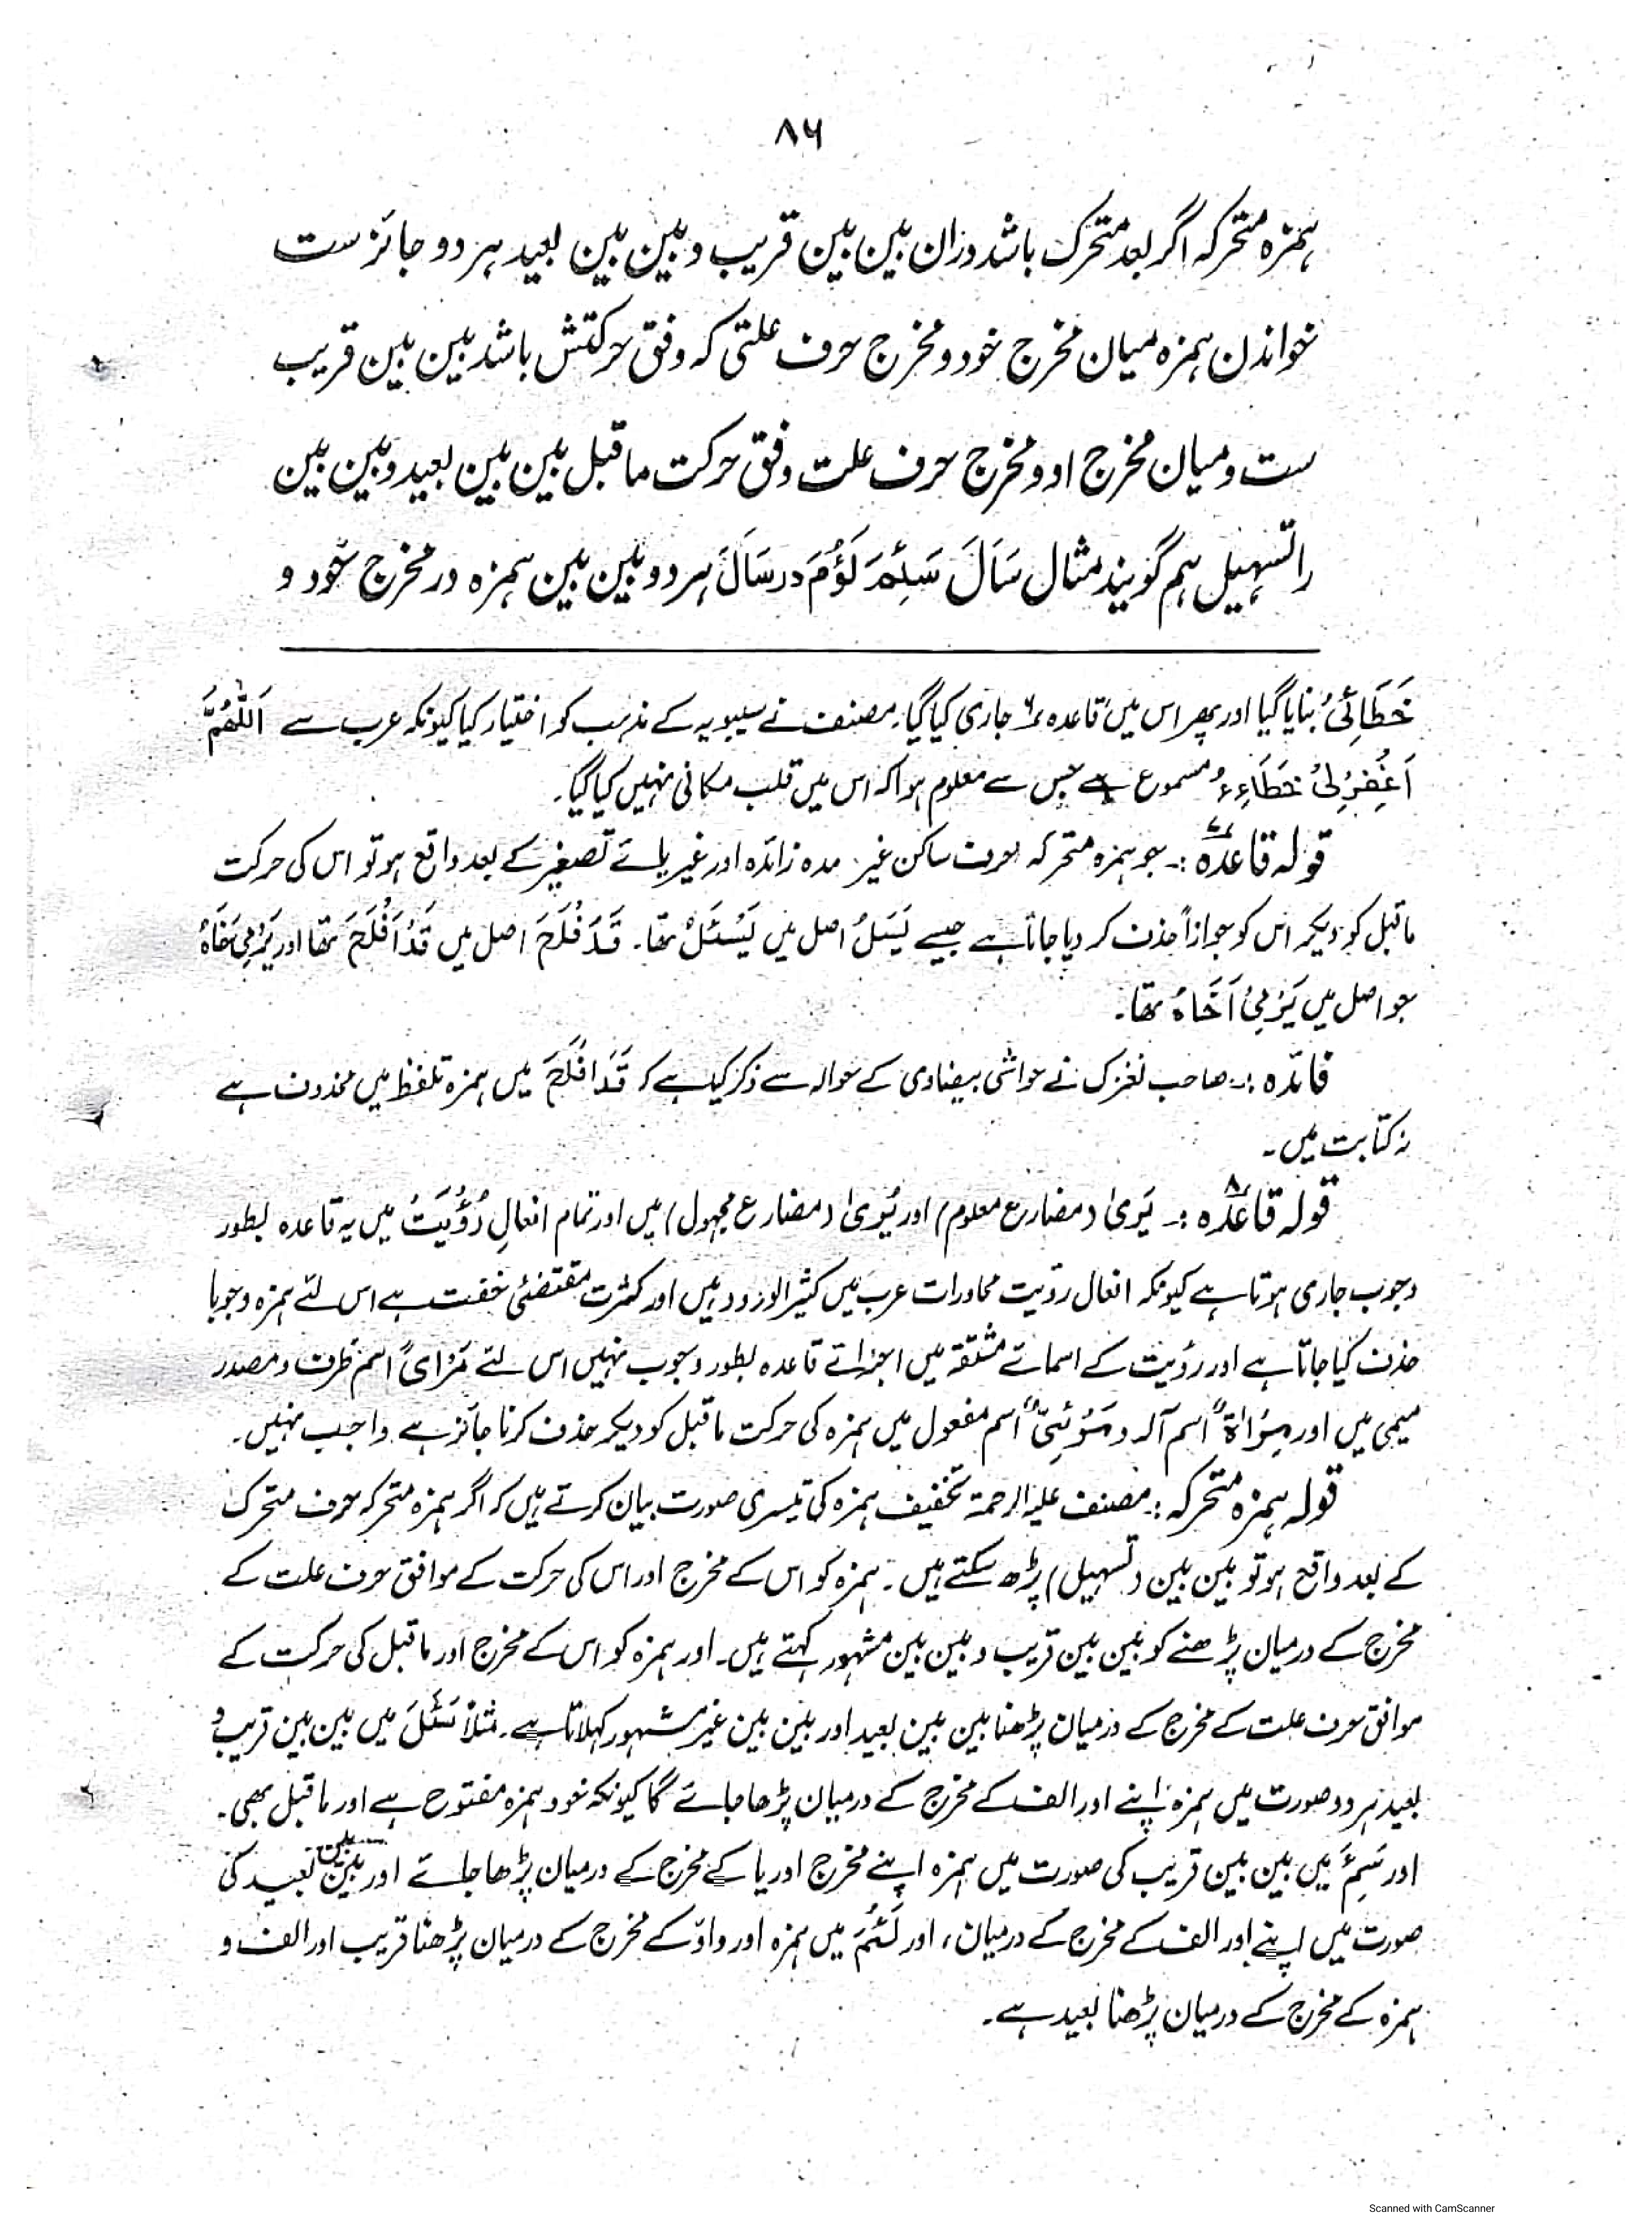 ۸۶
ہمزہ متحرکہ اگر بعد متحرک باشد دران بین بین قریب و بین بین بعید ہر دو جائز ست
خواندن ہمزہ میان مخرج خود و مخرج حرف علتی کہ وفق حرکتش باشد بین بین قریب
ست و میان مخرج او و مخرج حرف علت وفق حرکت ما قبل بین بین بعید و بین بین
را تسہیل ہم گویند مثال سَأَلَ سَئِمَ لَؤُمَ در سَأَلَ ہر دو بین بین ہمزہ در مخرج خود و
خَطَائِیُ بنایا گیا اور پھر اس میں قاعدہ ۶ جاری کیا گیا۔ مصنف نے سیبویہ کے مذہب کو اختیار کیا کیونکہ عرب سے اَللّٰهُمَّ
اَغْفِرْلِیْ خَطَاءِءُ مسموع ہے جس سے معلوم ہوا کہ اس میں قلب مکانی نہیں کیا گیا۔
قولہ قاعدہ :۔ جو ہمزہ متحرکہ حرف ساکن غیر مدہ زائدہ اور غیر یائے تصغیر کے بعد واقع ہو تو اس کی حرکت
ما قبل کو دیکر اس کو جوازاً حذف کر دیا جاتا ہے جیسے یَسَلُ اصل میں یَسْئَلُ تھا۔ قَدَ فْلَحَ اصل میں قَدْ اَفْلَحَ تھا اور یَرْمِیَ خَاهُ
جو اصل میں یَرْمِیْ اَخَاهُ تھا۔
فائدہ :۔ صاحب نغزک نے حواشی بیضاوی کے حوالہ سے ذکر کیا ہے کہ قَدَ افْلَحَ میں ہمزہ تلفظ میں محذوف ہے
نہ کتابت میں۔
قولہ قاعدہ ۸ :۔ یَریٰ (مضارع معلوم) اور یُریٰ (مضارع مجہول) میں اور تمام افعالِ رُؤْیَتْ میں یہ قاعدہ بطور
وجوب جاری ہوتا ہے کیونکہ افعال رؤیت محاورات عرب میں کثیر الورود ہیں اور کثرت مقتضئی خفت ہے اس لئے ہمزہ وجوبا
حذف کیا جاتا ہے اور رؤیت کے اسمائے مشتقہ میں اجرائے قاعدہ بطور وجوب نہیں اس لئے مَرْاٰیً اسم ظرف و مصدر
میمی میں اور مِرْاٰۃٌ اسم آلہ و مَرْئِیٌّ اسم مفعول میں ہمزہ کی حرکت ما قبل کو دیکر حذف کرنا جائز ہے واجب نہیں۔
قولہ ہمزہ متحرکہ :۔ مصنف علیہ الرحمۃ تخفیف ہمزہ کی تیسری صورت بیان کرتے ہیں کہ اگر ہمزہ متحرکہ حرف متحرک
کے بعد واقع ہو تو بین بین (تسہیل) پڑھ سکتے ہیں۔ ہمزہ کو اس کے مخرج اور اس کی حرکت کے موافق حرف علت کے
مخرج کے درمیان پڑھنے کو بین بین قریب و بین بین مشہور کہتے ہیں۔ اور ہمزہ کو اس کے مخرج اور ما قبل کی حرکت کے
موافق حرف علت کے مخرج کے درمیان پڑھنا بین بین بعید اور بین بین غیر مشہور کہلاتا ہے۔ مثلاً سَئَلَ میں بین بین قریب و
بعید ہر دو صورت میں ہمزہ اپنے اور الف کے مخرج کے درمیان پڑھا جائے گا کیونکہ خود ہمزہ مفتوح ہے اور ما قبل بھی۔
اور سَئِمَ میں بین بین قریب کی صورت میں ہمزہ اپنے مخرج اور یا کے مخرج کے درمیان پڑھا جائے اور بین بین بعید کی
صورت میں اپنے اور الف کے مخرج کے درمیان، اور لَئُمَ میں ہمزہ اور واؤ کے مخرج کے درمیان پڑھنا قریب اور الف و
ہمزہ کے مخرج کے درمیان پڑھنا بعید ہے۔
Scanned with CamScanner